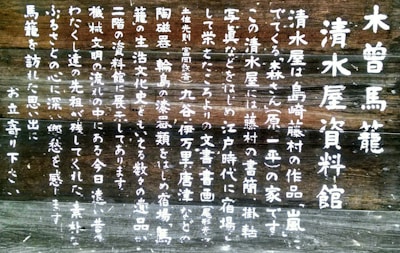 木曽馬籠
清水屋資料館
清水屋は島崎藤村の作品「嵐」に
でてくる森さん(原一平)の家です
この清水屋には藤村の書簡、掛軸
写真などをはじめ江戸時代に宿場と
して栄えたころよりの文書、書画
九谷、伊万里、唐津などの
陶磁器、輪島の漆器類をはじめ宿場、馬
籠の生活文化史を
二階の資料館に展示してあります。
機械文明の流れの中にある今日、遠い昔の
わたくし達の先祖が残してくれた、素朴な
ふるさとの心に深い郷愁を感じます
馬籠を訪れた思い出に
お立寄り下さい